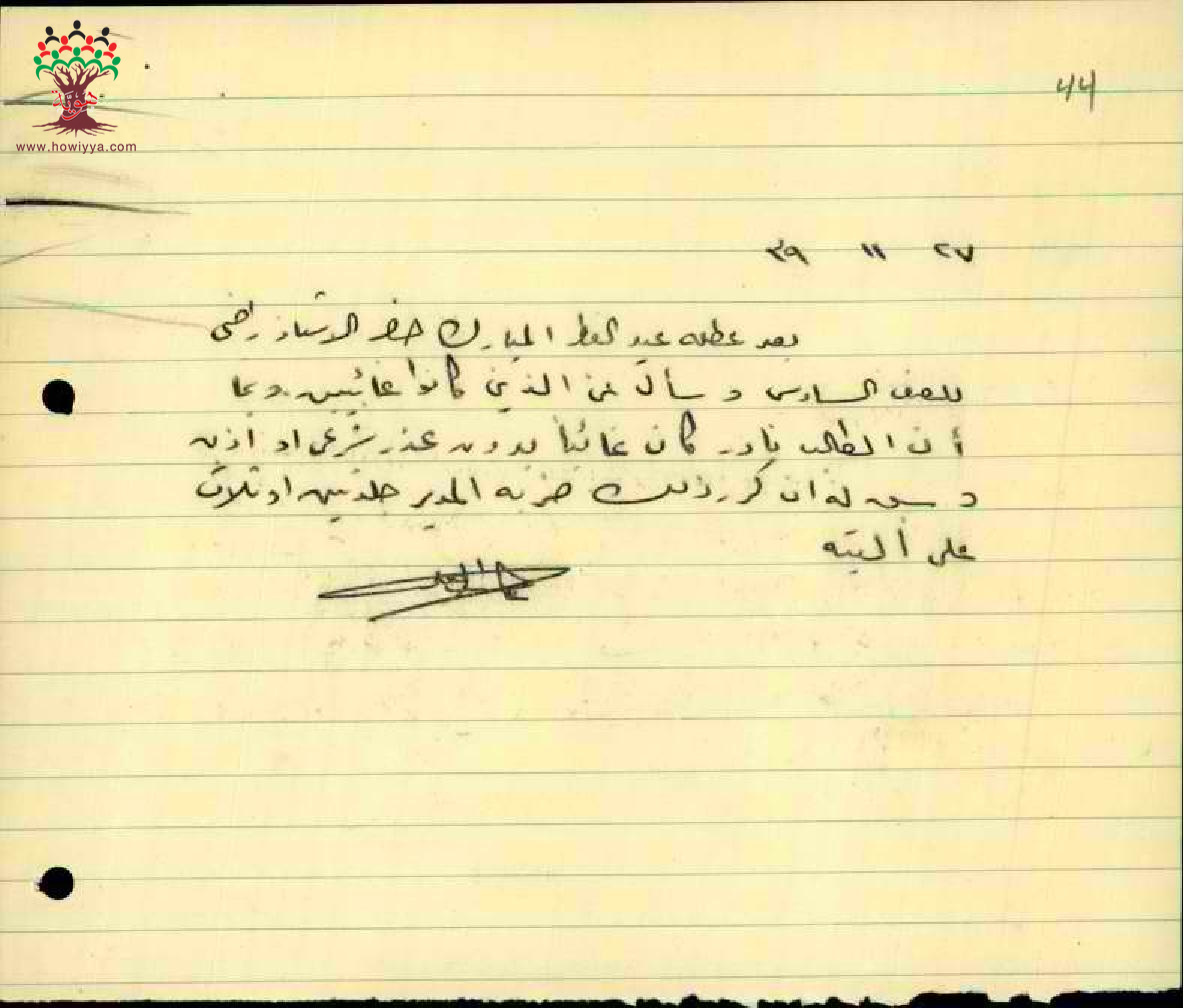 هوية
www.howiyya.com
44
٢٧ ١١ ٣٩
بعد عطله عيد الفطر المبارك حضر الاستاذ راضي
للصف السادس و سأل عن الذين كانوا غائبين. وبما
أن الطالب نادر كان غائباً بدون عذر شرعي او اذن
و سبق له ان كرر ذلك ضربه المدير جلدتين او ثلاث
على أليته